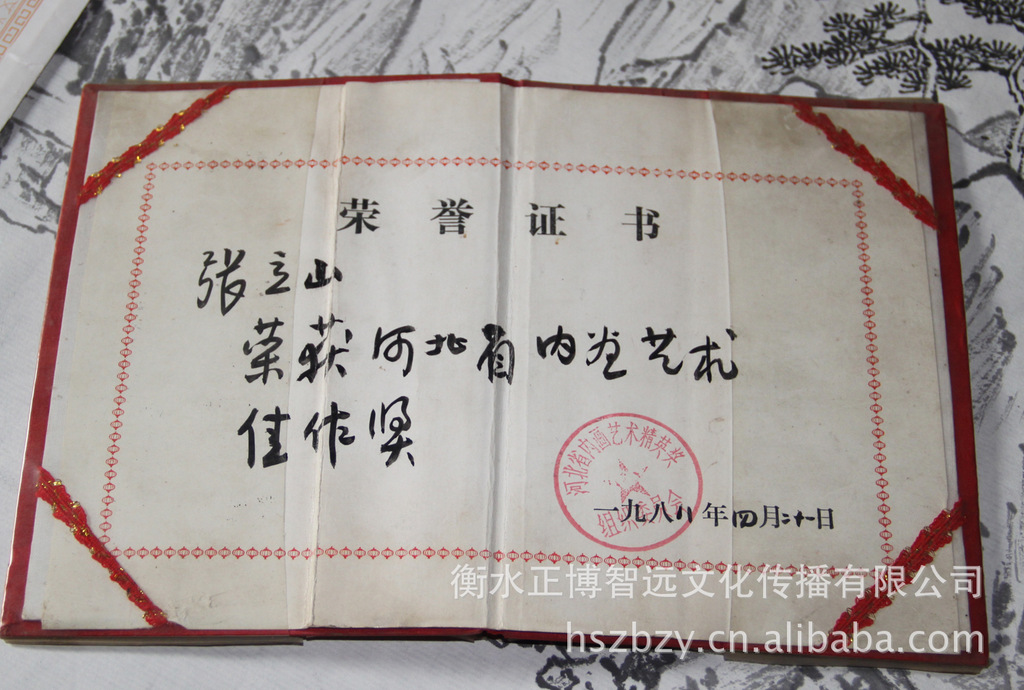 荣誉证书
张立山
荣获河北省内画艺术
佳作奖
河北省内画艺术精英奖
组织委员会
一九八八年四月二十日
衡水正博智远文化传播有限公司
hszbzy.cn.alibaba.com